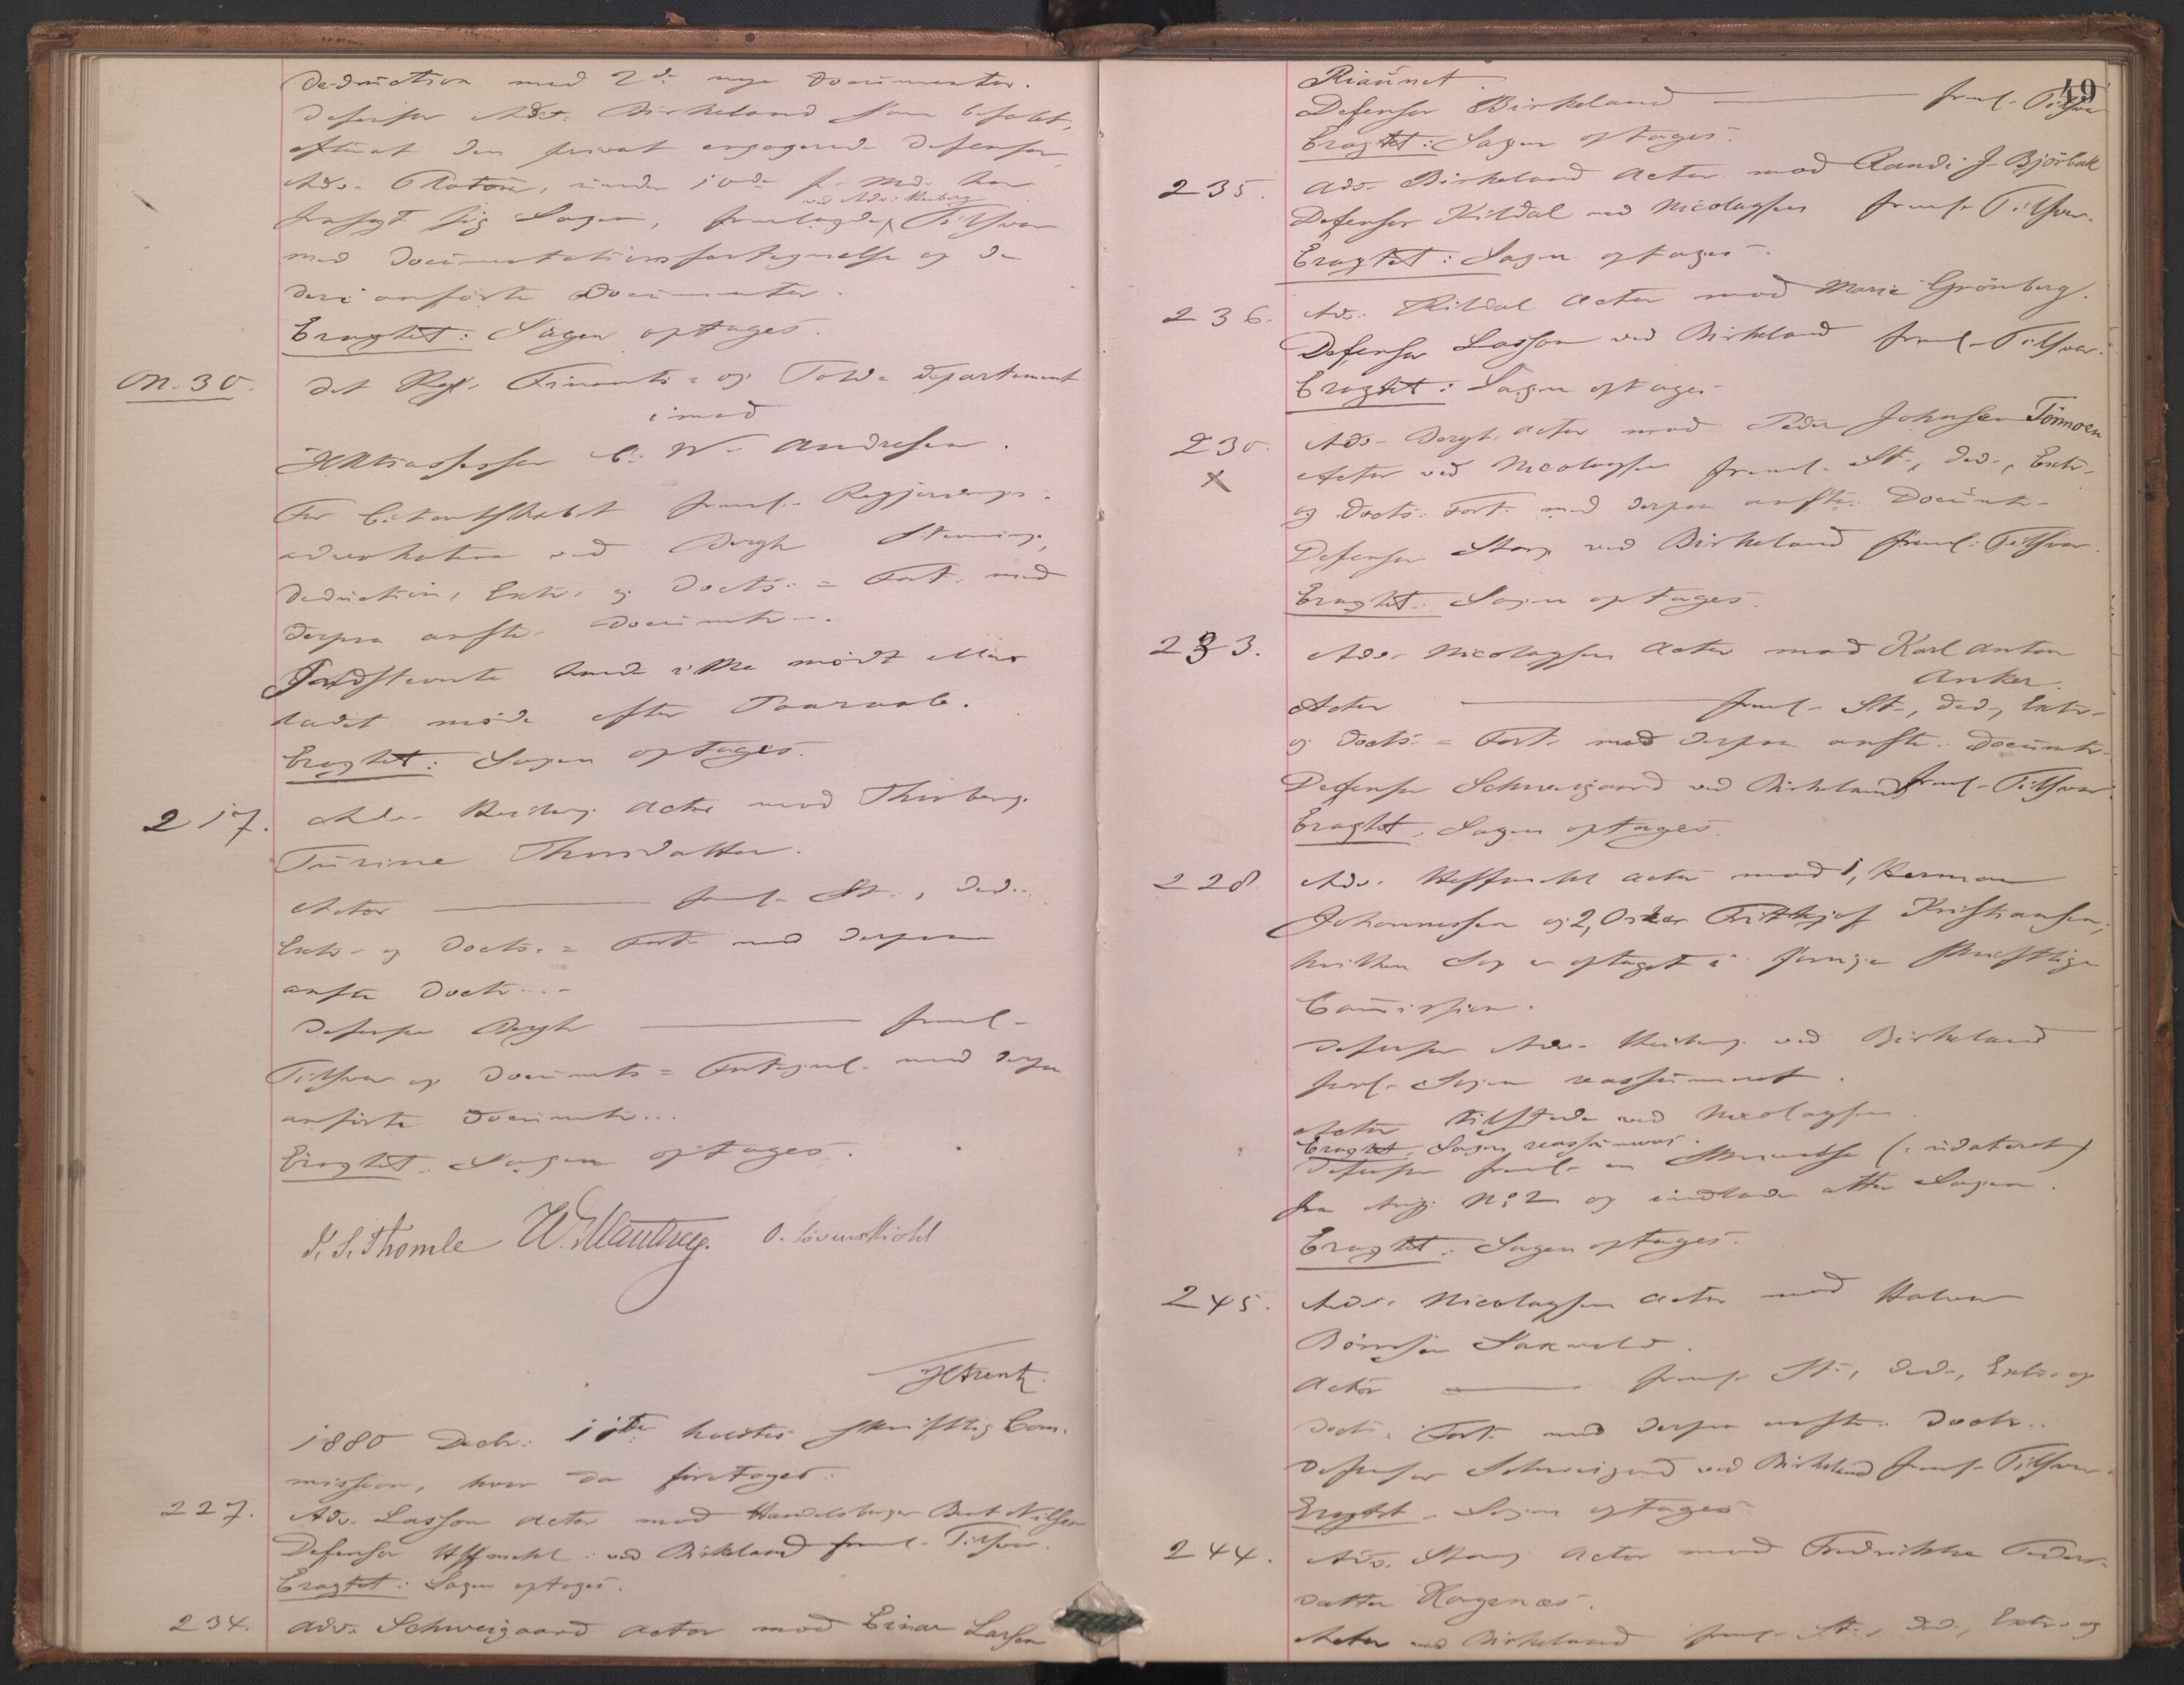 Deduction med 2de nye Documenter.
Defensor Adv. Birkeland som befalet,
efterat den privat engagerede Defensor,
Adv. under 10de f. Md. har
frasagt sig Sagen, fremlagde Tilsvar
ved Adv: Heiberg
med Documentationsfortegnelse og de
deri anførte Documenter.
Eragtet: Sagen optages.
N. 30. Det Kgl. Finants- og Told-Departement
imod
C. W. Andresen.
For Citantskabet freml. Regjerings-
advokaten ved Bergh Stevning,
Deduction, Extr. og Docts. = Fort. med
derpaa anfte. Documtr.
Indstevnte havde ikke mødt eller
ladet møde efter Paaraab.
Eragtet: Sagen optages.
217. Adv. Heiberg Actor mod Thorberg
Turine Thorsdatter.
Actor freml. St., Ded.,
Extr. og Docts. = Fort. med derpaa
anfte Doctr.
Defensor Bergh freml.
Tilsvar og Documts = Fortegnl. med derpaa
anførte Documtr...
Eragtet: Sagen optages.
I. S. Thomle O. Løvenskiold
1880 Decbr. 11te holdtes skriftlig Com-
mission, hvor da foretoges:
227. Adv. Lasson Actor mod Handelsborger Bent Nilsen
Defensor Hoffmahl ved Birkeland freml. Tilsvar.
Eragtet: Sagen optages.
234. Adv. Schweigaard Actor mod Einar Larsen
49
Riaunet
Defensor Birkeland freml. Tilsvar
Eragtet: Sagen optages.
235. Adv. Birkeland Actor mod Randi J. Bjørbak
Defensor Kildal ved Nicolaysen freml. Tilsvar.
Eragtet: Sagen optages.
236. Adv. Kildal Actor mod Marie Grönberg.
Defensor Lasson ved Birkeland freml. Tilsvar.
Eragtet: Sagen optages.
230. Adv. Bergh Actor mod Peder Johnsen Tønmoen
X Actor ved Nicolaysen freml. St., Ded., Extr.
og Docts. Fort. med derpaa anfte. Documtr.
Defensor Stang ved Birkeland freml. Tilsvar.
Eragtet: Sagen optages.
233. Adv. Nicolaysen Actor mod Karl Anton
Anker.
Actor freml. St., Ded., Extr.
og Docts. = Fort. med derpaa anfte. Documtr.
Defensor Schweigaard ved Birkeland freml. Tilsvar.
Eragtet: Sagen optages.
228. Adv. Hoffmahl Actor mod 1, Herman
Johannessen og 2, Oskar Frithjof Kristiansen,
hvilken Sag er optaget i forrige skriftlige
Commission.
Defensor Adv. Heiberg ved Birkeland
forl. Sagen reassumeret.
Actor tilstede ved Nicolaysen.
Eragtet: Sagen reassumeres.
Defensor freml. en Skrivelse (: udateret)
fra Ang. No 2 og indlader atter Sagen.
Eragtet: Sagen optages.
245. Adv. Nicolaysen Actor mod Halvor
Sakvold.
Actor freml. St., Ded., Extr. og
Docts. Fort. med derpaa anfte. Doctr..
Defensor Schweigaard ved Birkeland freml. Tilsvar.
Eragtet: Sagen optages.
244. Adv. Stang Actor mod Fredrikke Peders-
datter Hagenæs.
Actor ved Birkeland freml. St., Ded., Extr. og